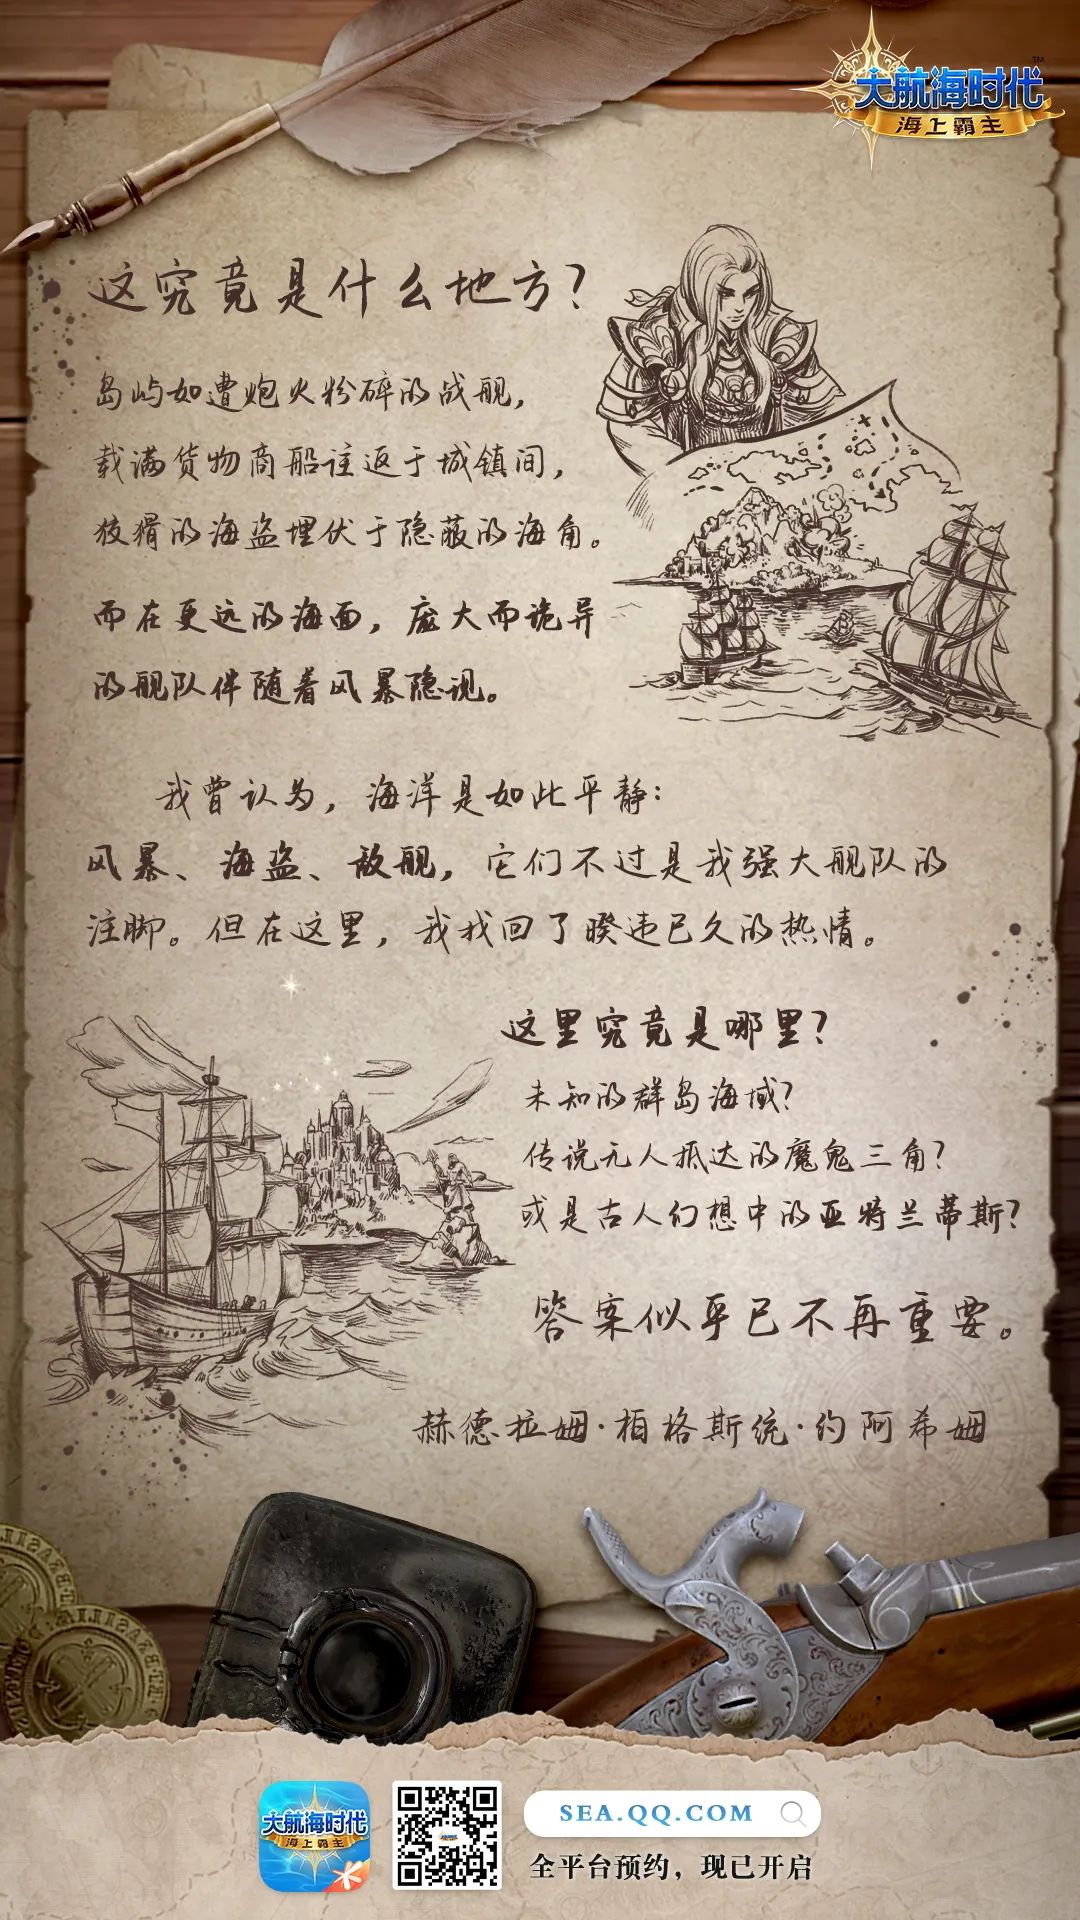 大航海时代™
海上霸主
这究竟是什么地方？
岛屿如遭炮火粉碎的战舰，
载满货物商船往返于城镇间，
狡猾的海盗埋伏于隐蔽的海角。
而在更远的海面，庞大而诡异
的舰队伴随着风暴隐现。
我曾认为，海洋是如此平静：
风暴、海盗、敌舰，它们不过是我强大舰队的
注脚。但在这里，我找回了睽违已久的热情。
这里究竟是哪里？
未知的群岛海域？
传说无人抵达的魔鬼三角？
或是古人幻想中的亚特兰蒂斯？
答案似乎已不再重要。
赫德拉姆·柏格斯统·约阿希姆
大航海时代
海上霸主
SEA.QQ.COM
全平台预约，现已开启